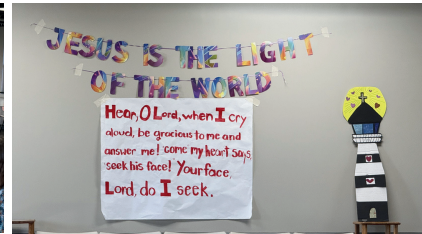 JESUS IS THE LIGHT
OF THE WORLD
Hear, O Lord, when I cry
aloud, be gracious to me and
answer me! come my heart says,
seek his face! Your face,
Lord, do I seek.